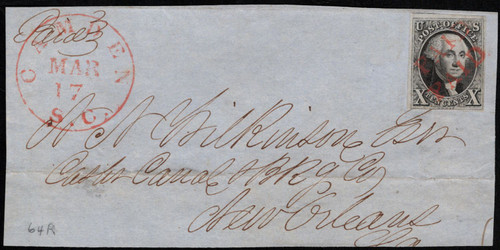 Paid
CAMDEN
MAR
17
S.C.
U S
POST OFFICE
X TEN CENTS X
Wilkinson Esqr
Canal & BKg Co
New Orleans
La
64R